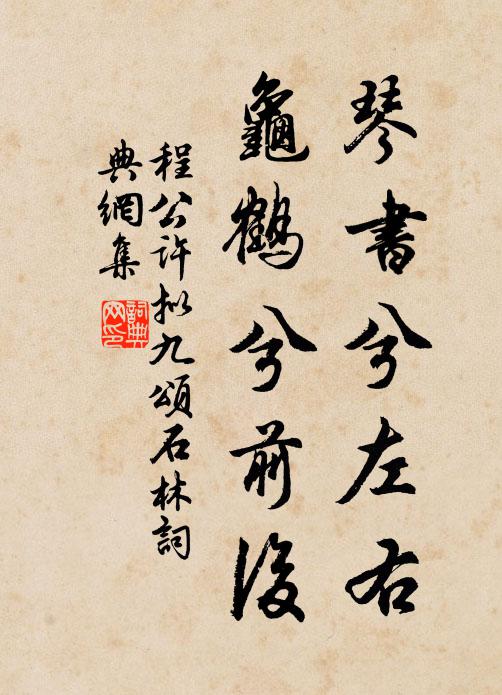 琴書兮左右
龜鶴兮前後
程公許拟九頌石林詞
典網集
詞典网印